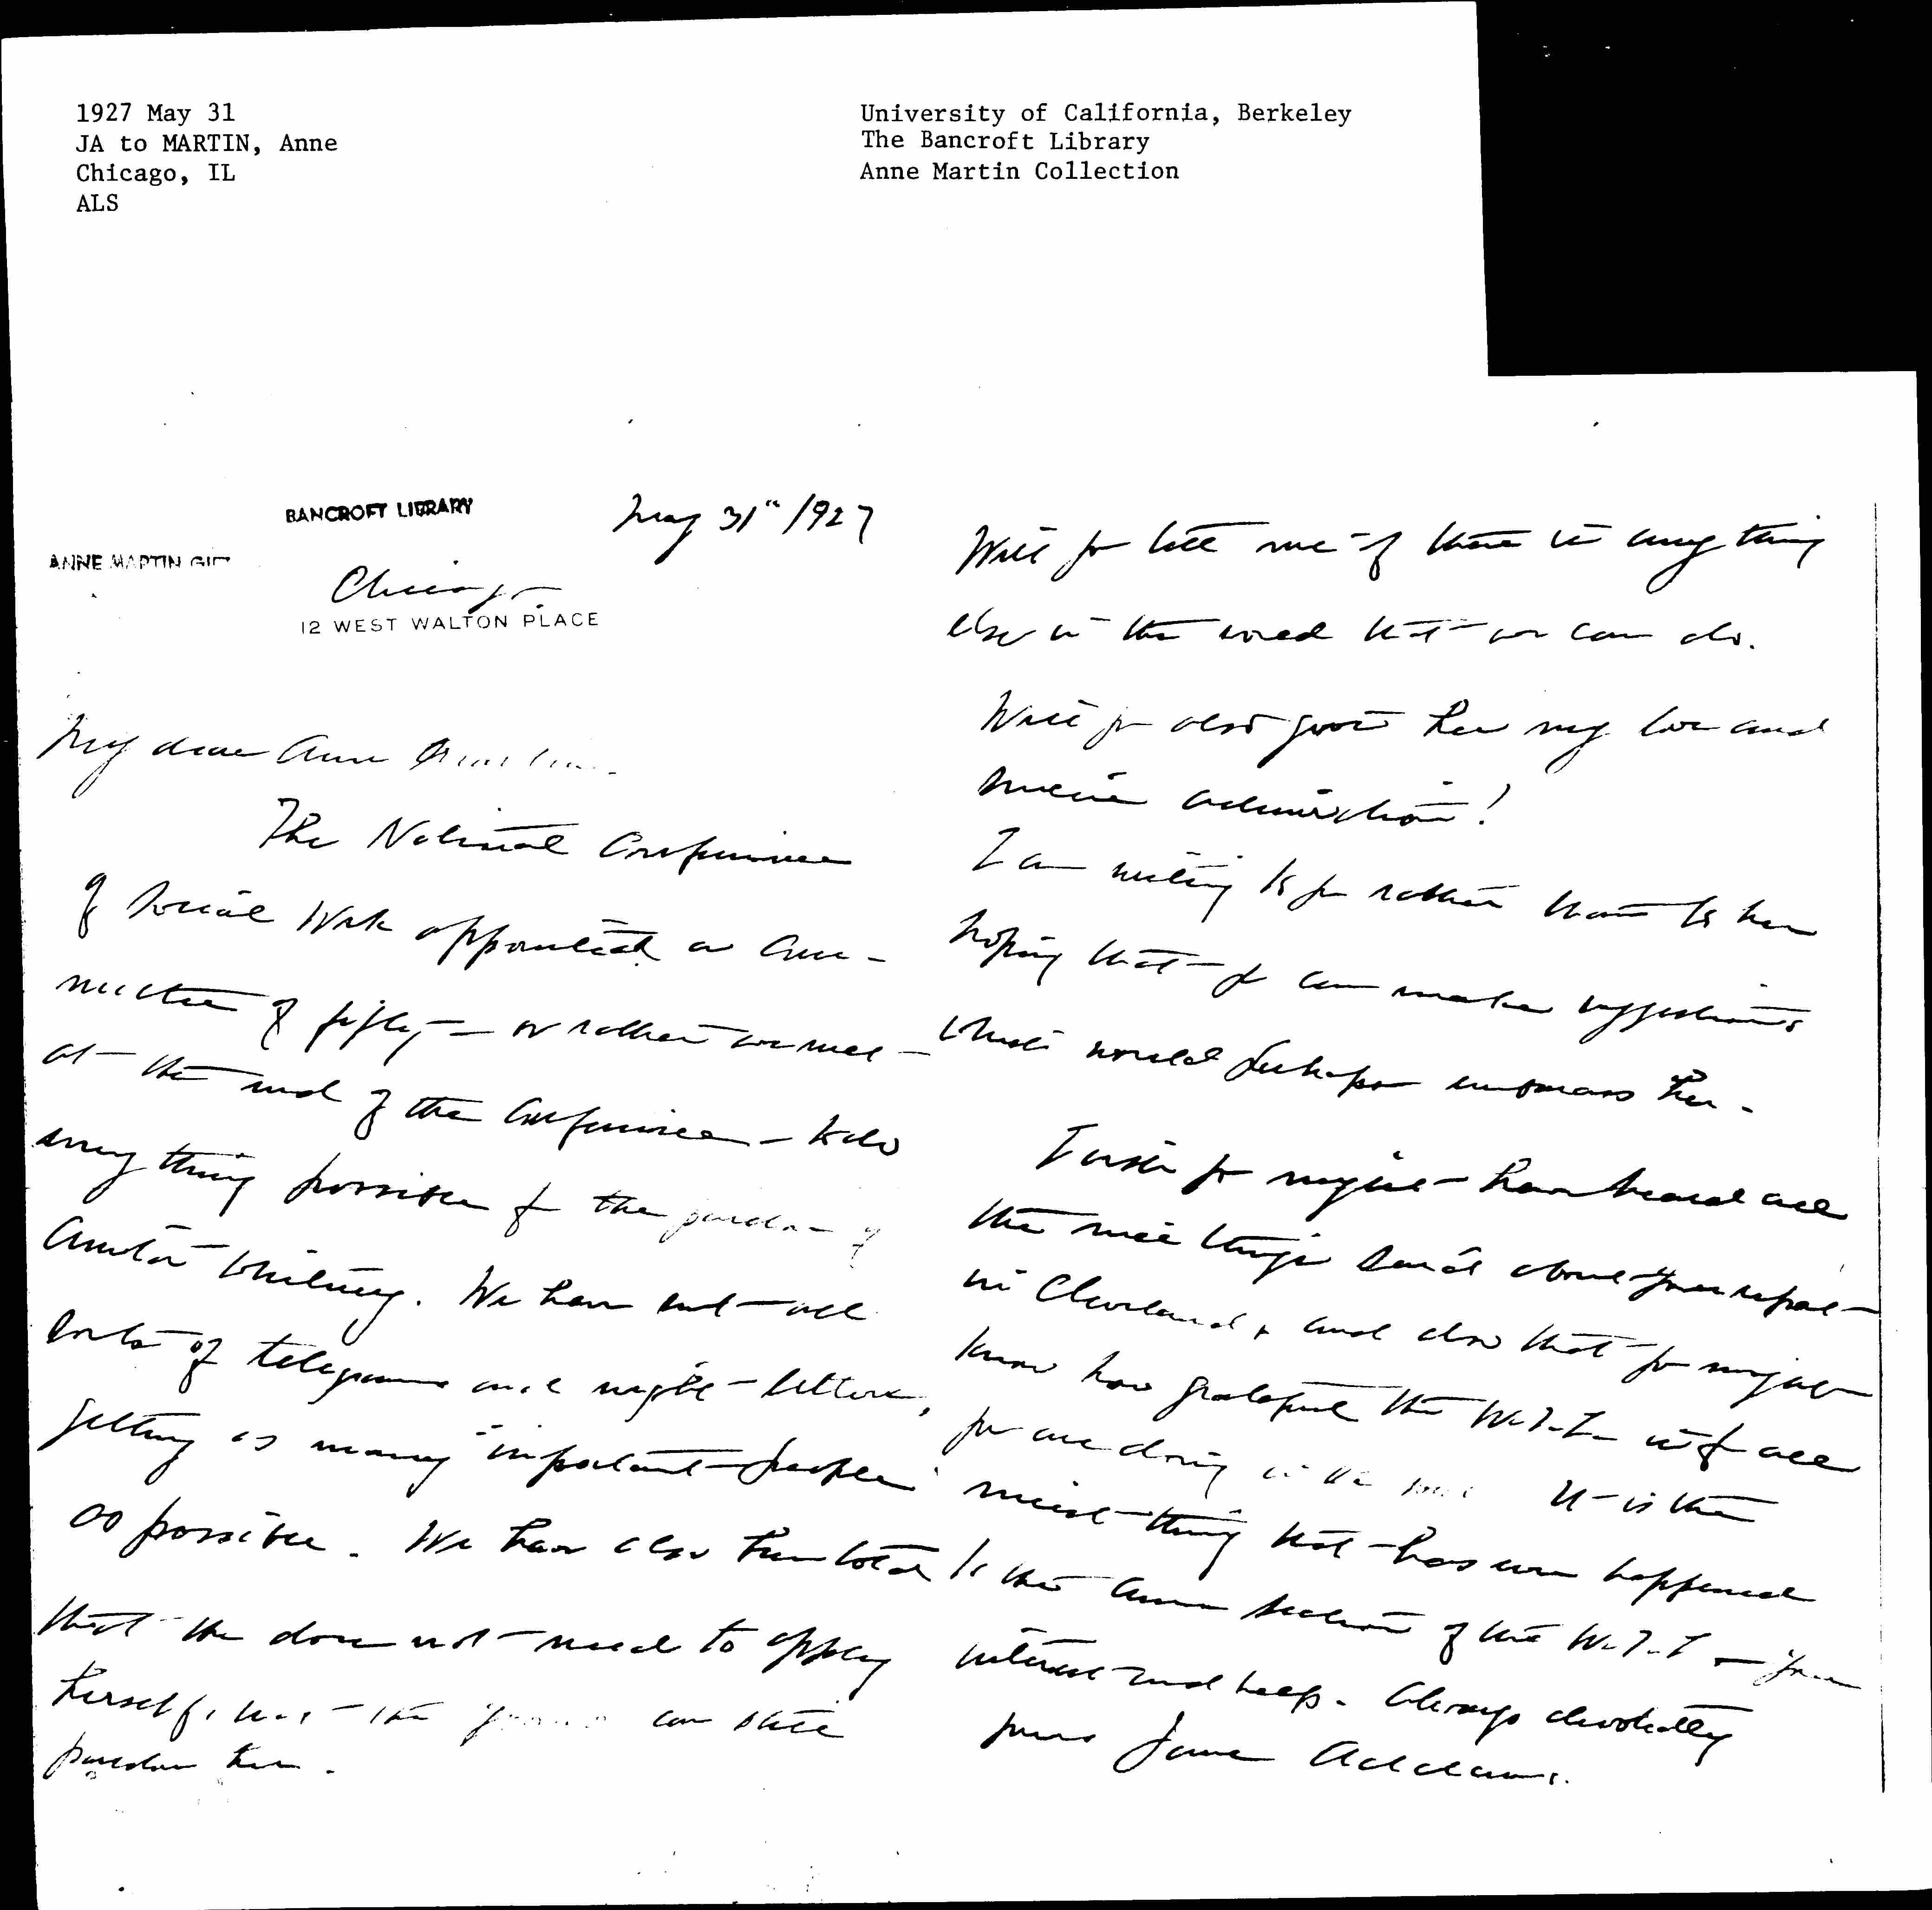 1927 May 31
JA to MARTIN, Anne
Chicago, IL
ALS
University of California, Berkeley
The Bancroft Library
Anne Martin Collection
BANCROFT LIBRARY
ANNE MARTIN GIFT
May 31" 1927
Chicago
12 WEST WALTON PLACE
My dear Anne Martin
The National Conference
of Social Work appointed a com-
mittee of fifty — or rather we met
at the end of the Conference — to do
every thing possible for the pardon of
Anita Whitney. We have sent all
sorts of telegrams and night-letters,
getting as many important people
as possible. We have also been told
that she does not need to apply
herself, that the can still
pardon her.
Will you tell me if there is any thing
else in the world that we can do.
Will you also give her my love and
admiration!
I am writing to you rather than to her
hoping that you can make suggestions
which would perhaps embarrass her.
I wish you might have heard all
the nice things said about your report
in Cleveland, and also that you might
know how grateful the W.I.L. is for all
you are doing in the It is the
nicest thing that has ever happened
to the Amer section of the W.I.L — your
interest and help. Always devotedly
yours Jane Addams.